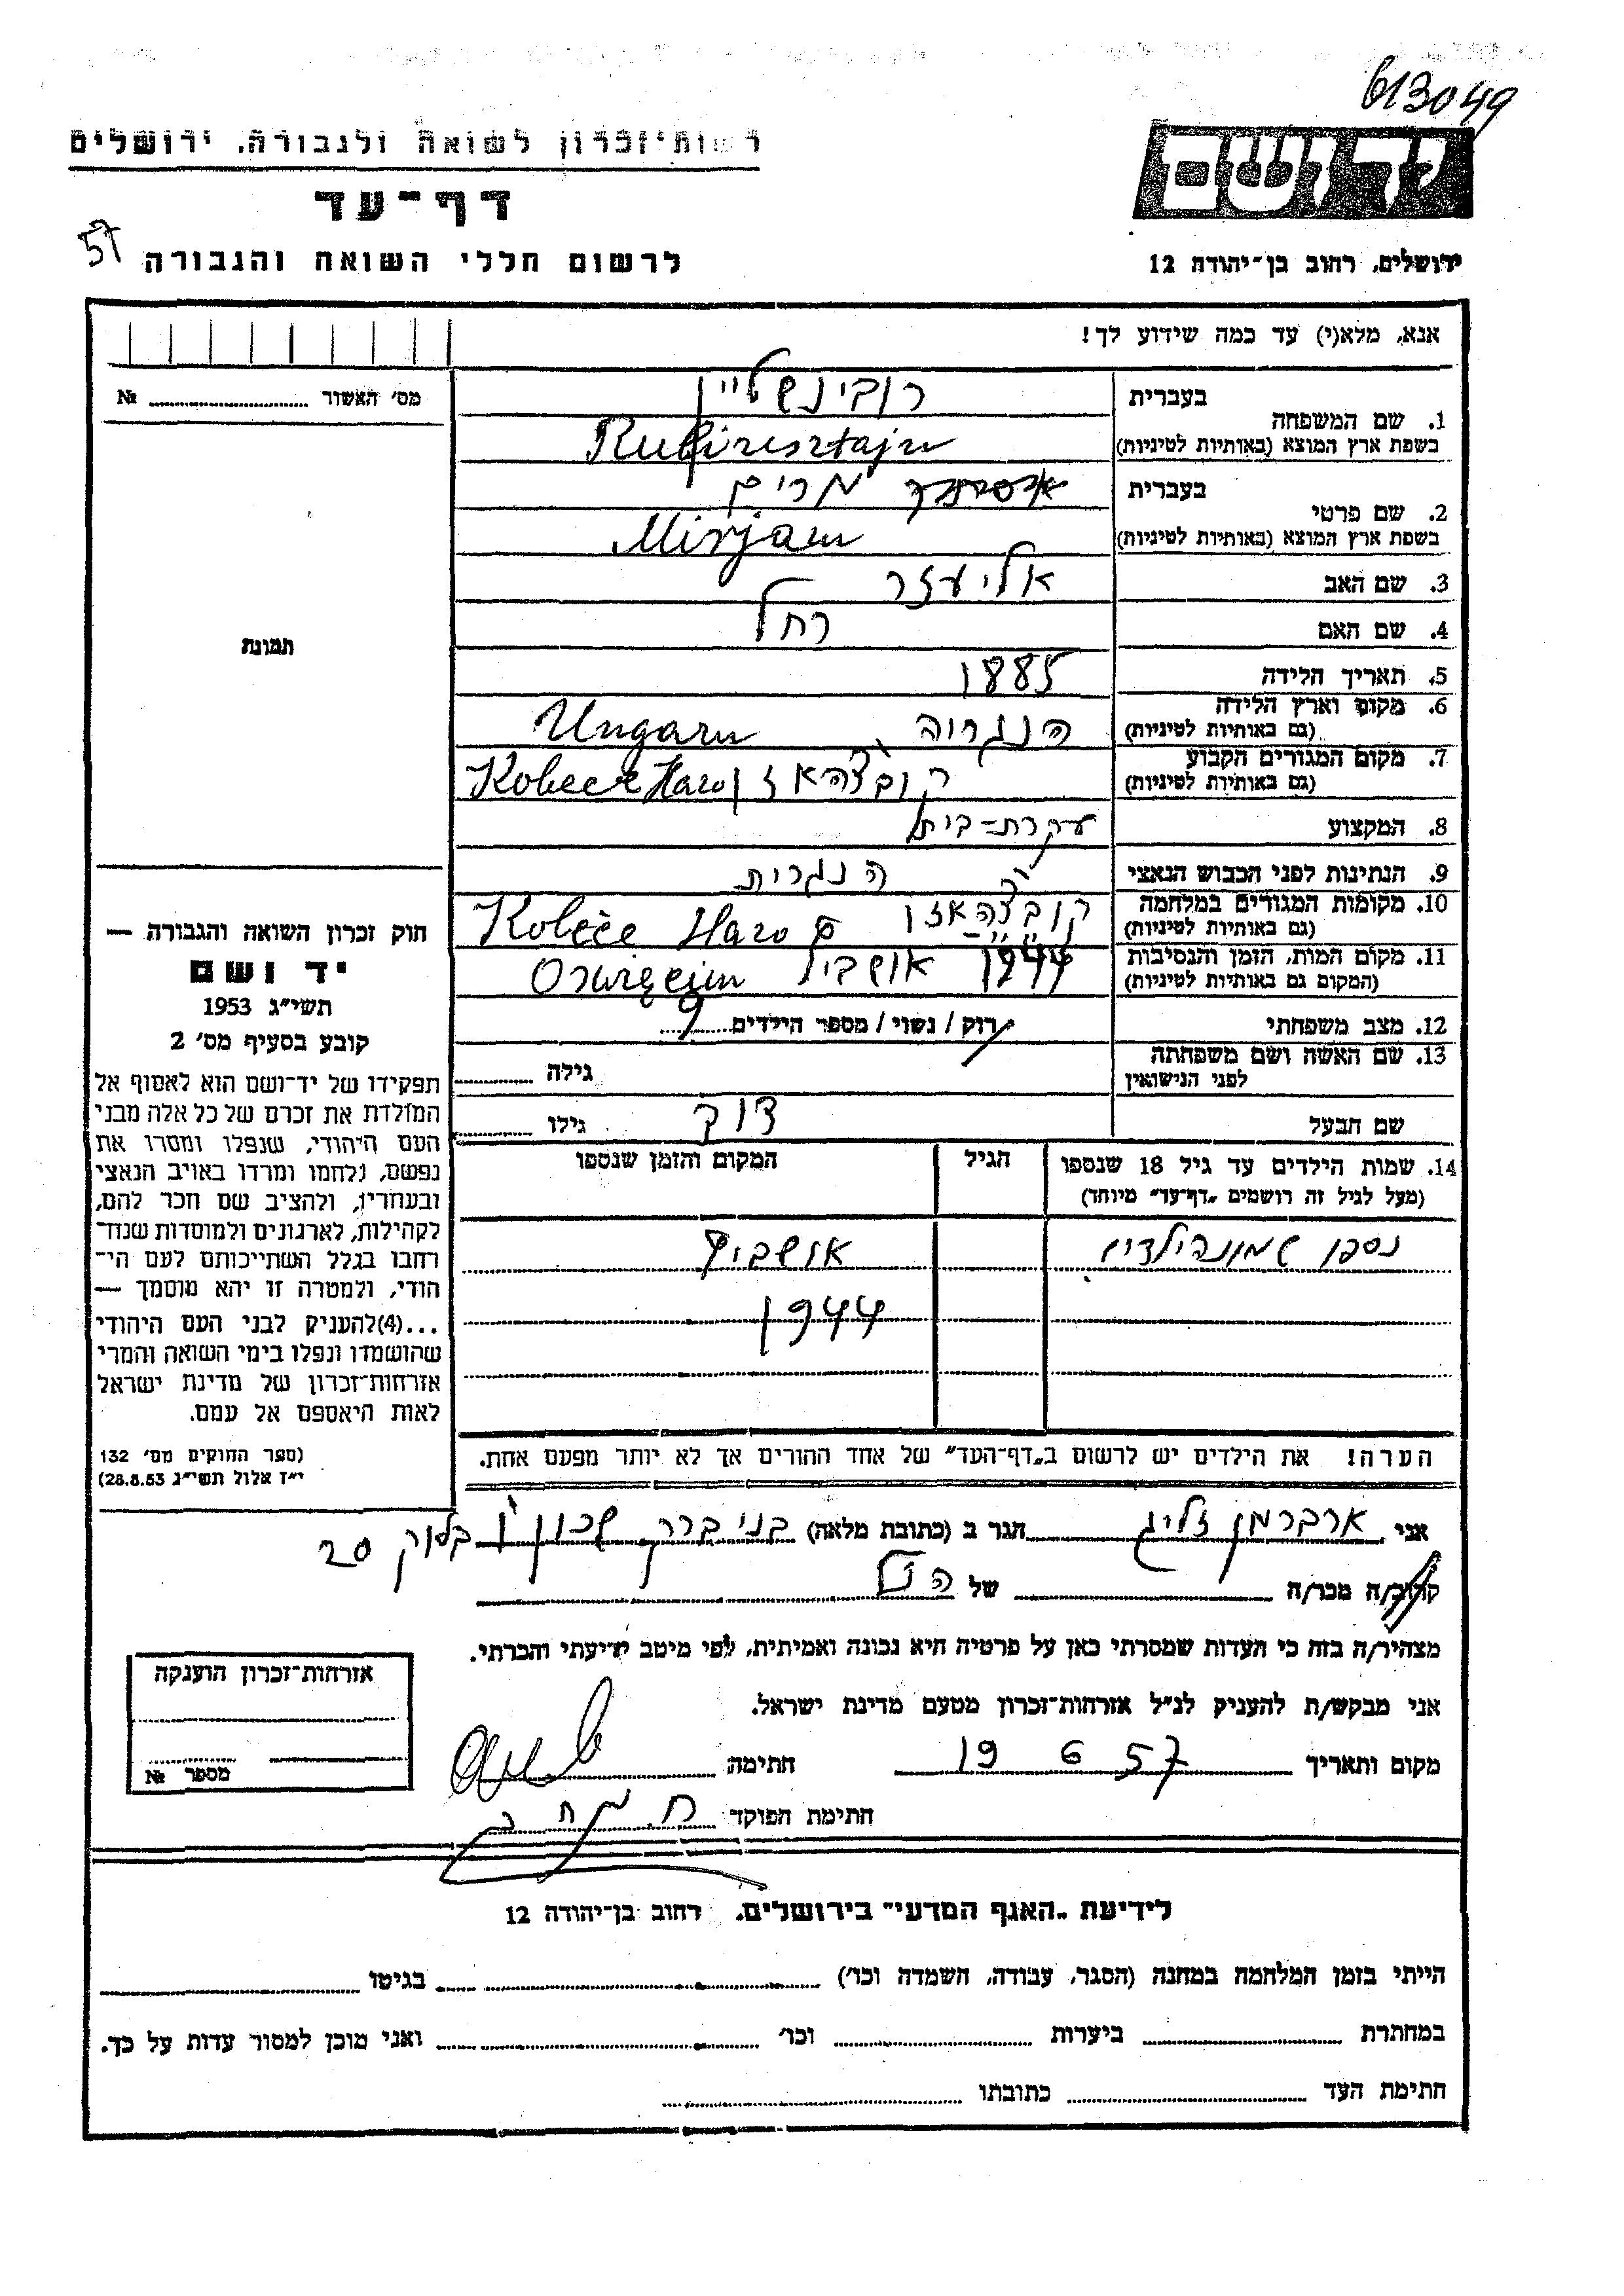 613049
רשות־זכרון לשואה ולגבורה, ירושלים
יד ושם
דף־עד
57
לרשום חללי השואה והגבורה
ירושלים, רחוב בן־יהודה 12
אנא, מלא(י) עד כמה שידוע לך!
מס׳ האשור № 
1. שם המשפחה
בעברית רובינשטיין
בשפת ארץ המוצא (באותיות לטיניות) Rubinsztajn
2. שם פרטי
בעברית מרים
בשפת ארץ המוצא (באותיות לטיניות) Mirjam
3. שם האב אליעזר
4. שם האם רחל
5. תאריך הלידה 1885
6. מקום וארץ הלידה הנגריה Ungarn
(גם באותיות לטיניות)
7. מקום המגורים הקבוע
(גם באותיות לטיניות)
8. המקצוע עקרת-בית
9. הנתינות לפני הכבוש הנאצי הנגרית
10. מקומות המגורים במלחמה
(גם באותיות לטיניות)
11. מקום המות, הזמן והנסיבות 1944
(המקום גם באותיות לטיניות)
12. מצב משפחתי רוק / נשוי / מספר הילדים 9
13. שם האשה ושם משפחתה
לפני הנישואין גילה
שם הבעל דוד גילו
14. שמות הילדים עד גיל 18 שנספו הגיל המקום והזמן שנספו
(מעל לגיל זה רושמים „דף־עד״ מיוחד)
נספו שמונה ילדים אושביץ
1944
הערה! את הילדים יש לרשום ב„דף־העד״ של אחד ההורים אך לא יותר מפעם אחת.
תמונת
חוק זכרון השואה והגבורה —
יד ושם
תשי״ג 1953
קובע בסעיף מס׳ 2
תפקידו של יד־ושם הוא לאסוף אל
המולדת את זכרם של כל אלה מבני
העם היהודי, שנפלו ומסרו את
נפשם, נלחמו ומרדו באויב הנאצי
ובעוזריו, ולהציב שם וזכר להם,
לקהילות, לארגונים ולמוסדות שנח־
רבו בגלל השתייכותם לעם הי־
הודי, ולמטרה זו יהא מוסמך —
...(4)להעניק לבני העם היהודי
שהושמדו ונפלו בימי השואה והמרי
אזרחות־זכרון של מדינת ישראל
לאות היאספם אל עמם.
(ספר החוקים מס׳ 132
י״ז אלול תשי״ג 28.8.53)
אני זליג הגר ב (כתובת מלאה) בני ברק שכון ו׳ בלוק 20
קרוב/ה מכר/ה של הנ״ל
מצהיר/ה בזה כי העדות שמסרתי כאן על פרטיה היא נכונה ואמיתית, לפי מיטב ידיעתי והכרתי.
אני מבקש/ת להעניק לנ״ל אזרחות־זכרון מטעם מדינת ישראל.
מקום ותאריך 19 6 57 חתימה
חתימת הפוקד
אזרחות־זכרון הוענקה
מספר №
לידיעת „האגף המדעי״ בירושלים, רחוב בן־יהודה 12
הייתי בזמן המלחמה במחנה (הסגר, עבודה, השמדה וכו׳) בגיטו
במחתרת ביערות וכו׳ ואני מוכן למסור עדות על כך.
חתימת העד כתובתו